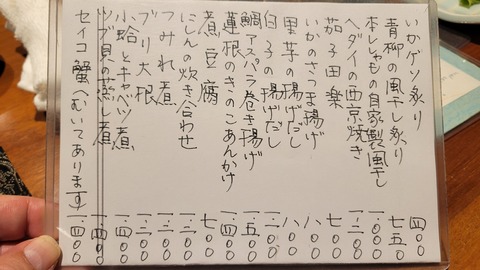 いかゲソ炙り 四〇〇
青柳の風干し炙り 七五〇
本ししゃもの自家製風干し 一.〇〇〇
ヘダイの西京焼き 一.二〇〇
茄子田楽 七〇〇
いかのさつま揚げ 八〇〇
里芋の揚げだし 八〇〇
白子の揚げだし 一.二〇〇
鯛アスパラ巻き揚げ 一.五〇〇
蓮根のきのこあんかけ 一.四〇〇
煮豆腐 七〇〇
にしんの炊き合わせ 一.二〇〇
つみれ煮 一.二〇〇
ブリ大根 一.二〇〇
小蛤とキャベツ煮 一.〇〇〇
ツブ貝の蒸し煮 一.四〇〇
セイコ蟹へむいてあります 一.四〇〇